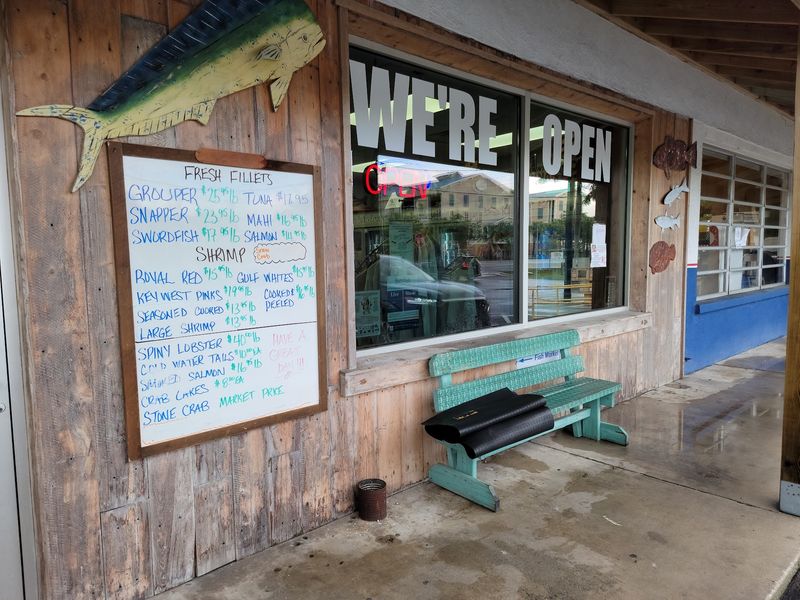 FRESH FILLETS
GROUPER $25.95 lb TUNA $17.95
SNAPPER $23.95 lb MAHI $16.95 lb
SWORDFISH $17.95 lb SALMON $11.95 lb
SHRIMP
ROYAL RED $15.95 lb GULF WHITES
KEY WEST PINKS $19.95 lb COOKED & PEELED
SEASONED COOKED $13.95 lb
LARGE SHRIMP $13.95 lb
SPINY LOBSTER $40.00 lb
COLD WATER TAILS $10.00 EA
SMOKED SALMON $16.95 lb
CRAB CAKES $8.00 EA
STONE CRAB MARKET PRICE
HAVE A
GREAT
DAY!!!
WE'RE OPEN
OPEN
Fish Market